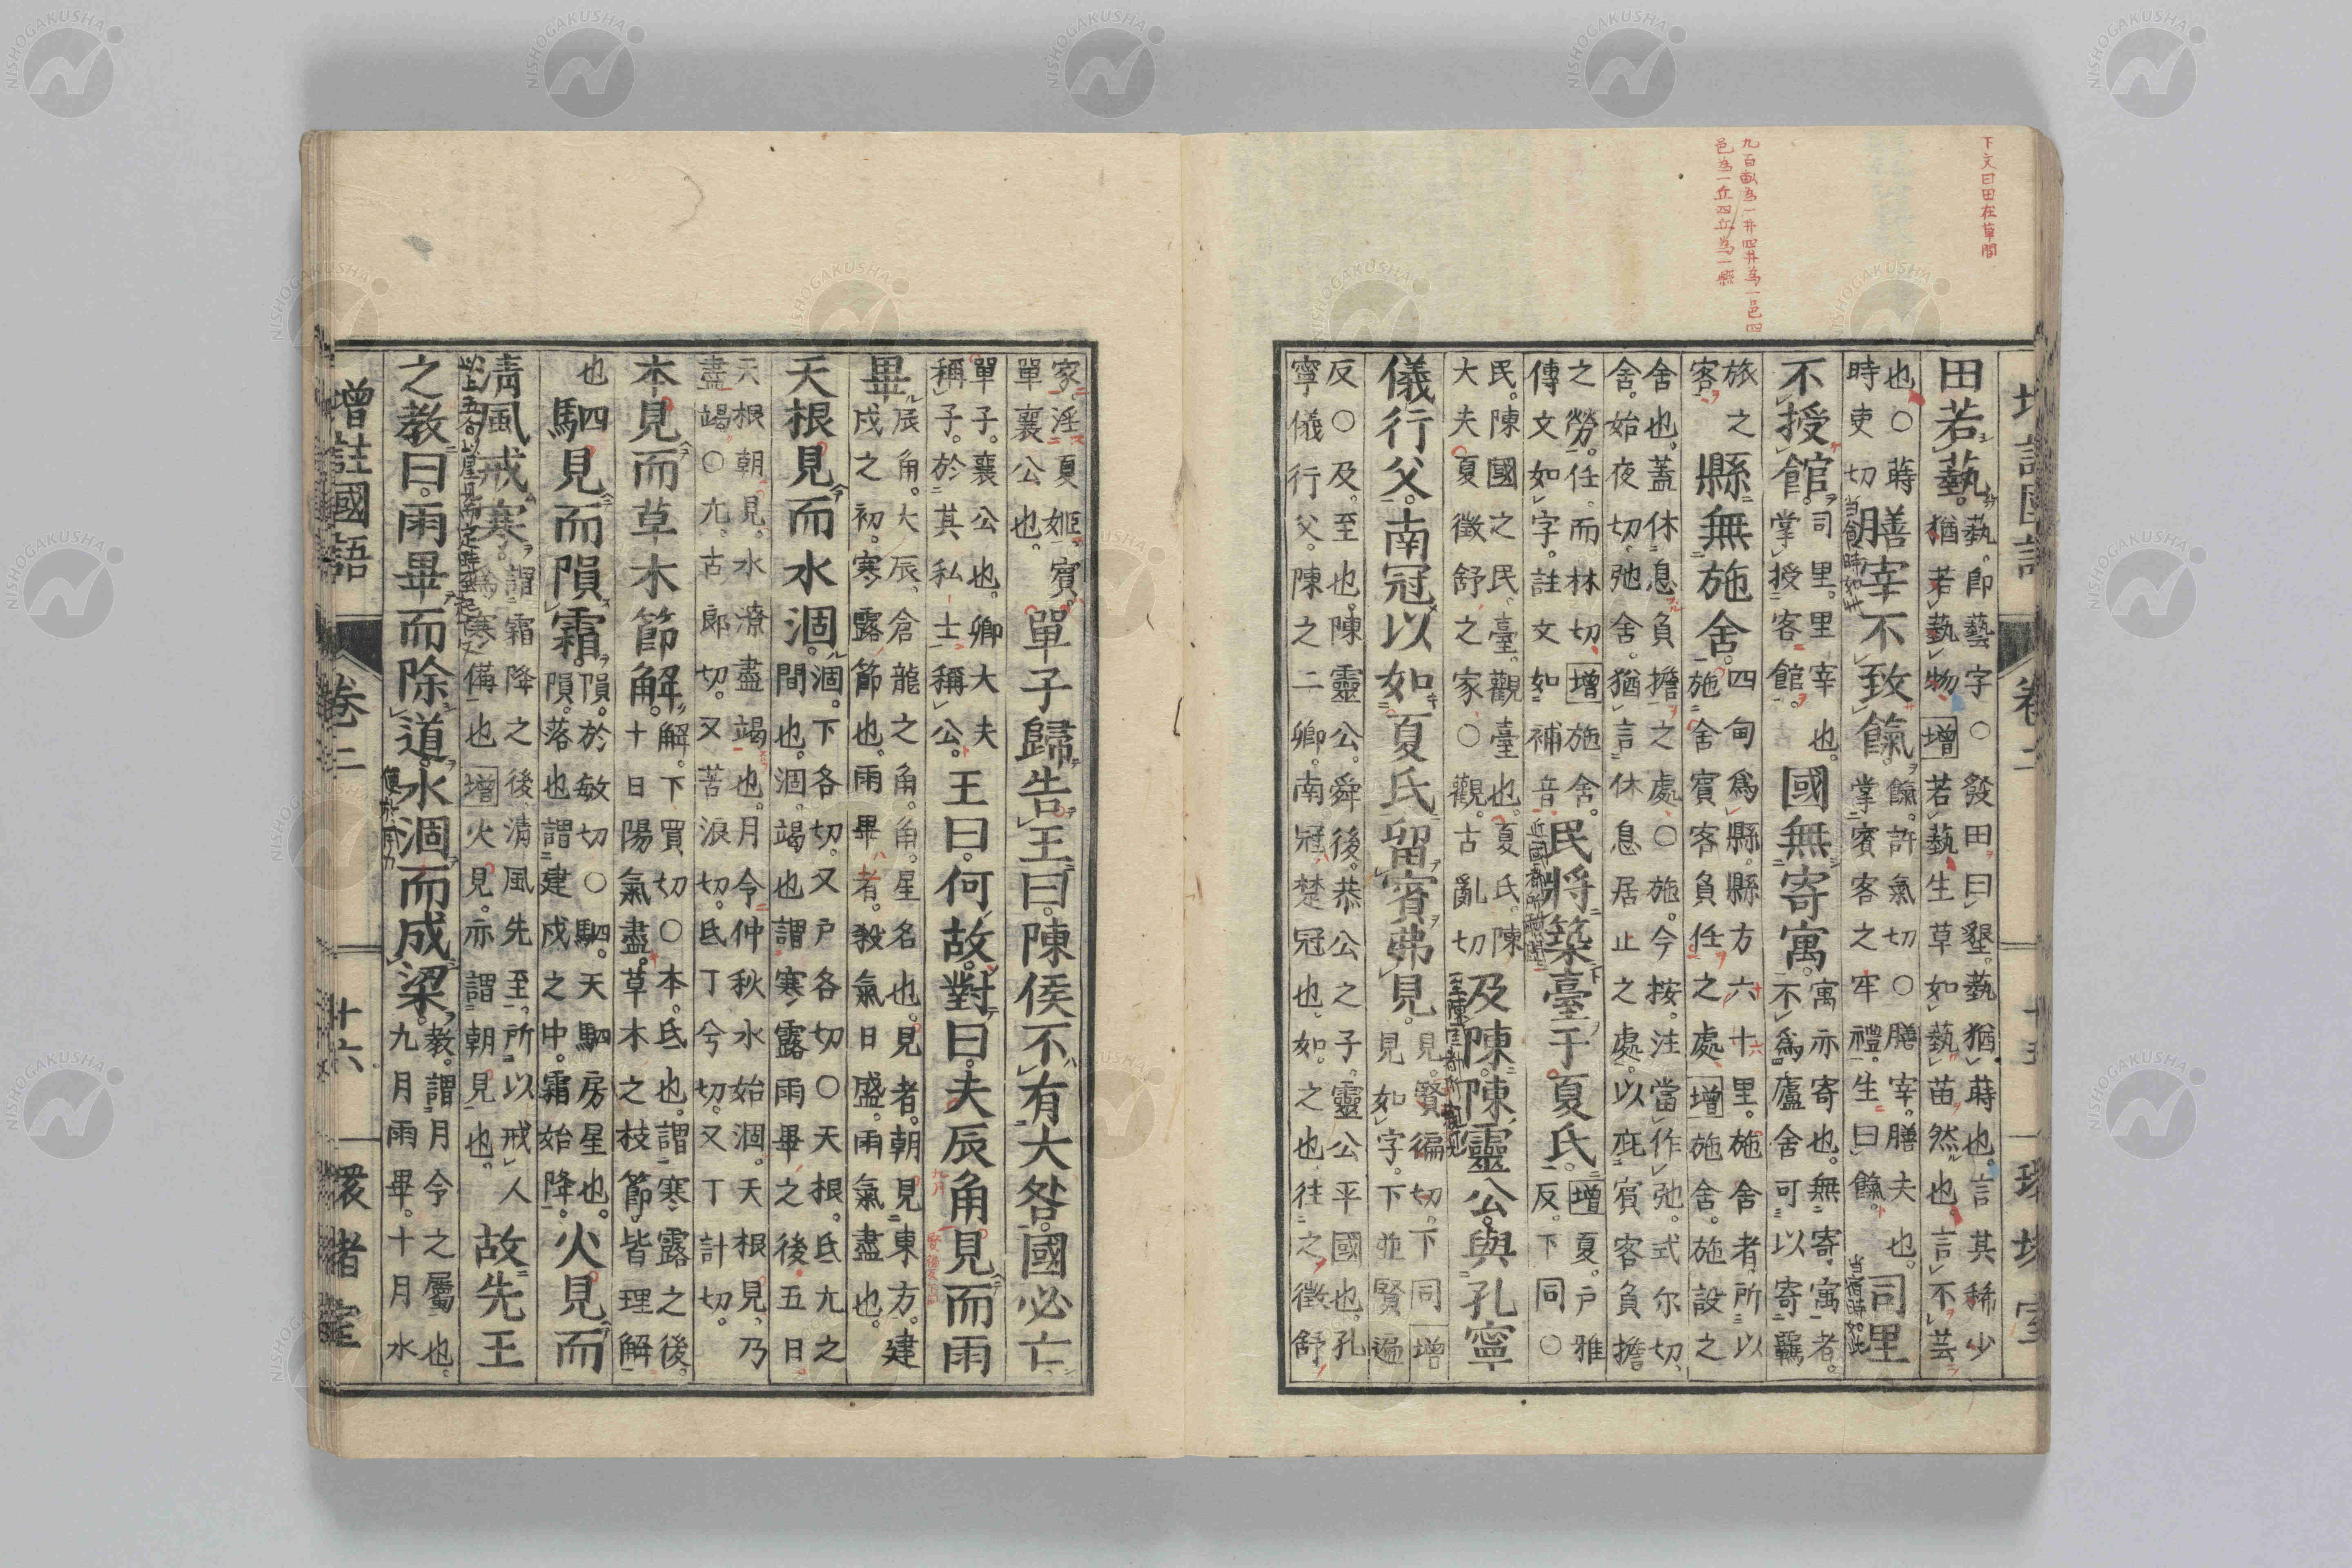 下文曰田在草間
九百畝為一井四井為一邑四
邑為一丘四丘為一縣
田若蓺。
蓺。即藝字○發田曰墾。蓺猶蒔也。言其稀少
猶若蓺物。增若蓺生草如蓺苗然也。言不芸
也。○蒔
時吏切
膳宰不致餼。
餼。許氣切○膳宰。膳夫也。
掌賓客之牢禮。生曰餼。
司里
当宿時如此
不授館。
司里。里宰也。
掌授客館。
國無寄寓。
寓亦寄也。無寄寓者。
不爲廬舍可以寄羈
旅之
客
縣無施舍。
四甸爲縣。縣方六十里。施舍者。所以
施舍賓客負任之處增施舍。施設之
舍也。蓋休息負擔之處○施。今按。注當作弛。式尔切。
舍。始夜切。弛舍。猶言休息居止之處。以庇賓客負擔。
之勞。任。而林切。增施舍。
傳文如字。註文如補音
民將築臺于夏氏。
增夏。戶雅
反。下同○
民。陳國之民。臺。觀臺也。夏氏。陳
大夫夏徵舒之家○觀。古亂切
及陳陳靈公與孔寧
儀行父。南冠以如夏氏留賓弗見。
見。賢徧切。下同增
見如字。下並賢遍
反○及。至也。陳靈公。舜後。恭公之子。靈公平國也。孔
寧儀行父。陳之二卿。南冠。楚冠也。如。之也。往之徵舒
家。淫夏姬。賓。
單襄公也。
單子歸告王曰。陳侯不有大咎。國必亡。
單子。襄公也。卿大夫
稱子。於其私士稱公。
王曰。何故。對曰。夫辰角見而雨
畢。
辰角。大辰。倉龍之角。角。星名也。見者。朝見東方。建
戍之初。寒露節也。雨畢者。殺氣日盛。雨氣盡也。
天根見而水涸。
涸。下各切。又戶各切○天根。氐亢之
間也。涸。竭也。謂寒露雨畢之後五日。
天根朝見。水潦盡竭也。月令仲秋水始涸。天根見。乃
盡竭。○亢。古郎切。又苦浪切。氐丁兮切。又丁計切。
本見而草木節解。
解。下買切○本。氐也。謂寒露之後。
十日陽氣盡。草木之枝節皆理解
也
駟見而隕霜。
隕。於敏切○駟。天駟。房星也。
隕。落也。謂建戍之中。霜始降。
火見而
淸風戒寒。
謂霜降之後。淸風先至。所以戒人
爲寒備也增火見。亦謂朝見也。
故先王
之教曰。雨畢而除道。水涸而成梁。
教。謂月令之屬也。
九月雨畢。十月水
增註國語 卷二 十六